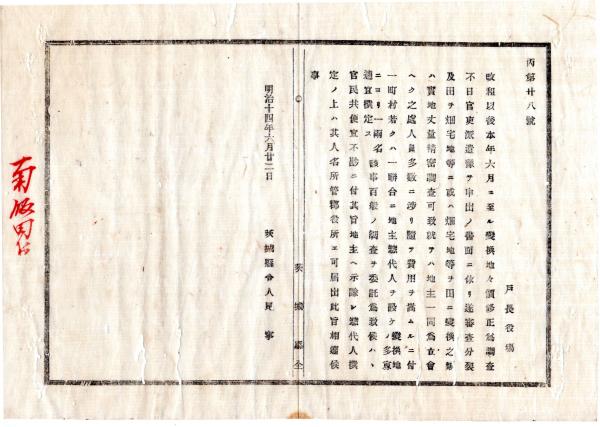 丙第廿八號
戸長役場
改租以後本年六月ニ至ル變換地々價修正爲調査
不日官吏派遣豫テ申出ノ書面ニ依リ遂審査分裂
及田ヲ畑宅地等ニ或ハ畑宅地等ヲ田ニ變換之類
ハ實地丈量精密調査可致就テハ地主一同爲立會
ヘク之處人員多數ニ渉リ隨テ費用ヲ嵩ムルニ付
一町村若クハ一聯合ニ地主惣代人ヲ設ケ變換地ノ多寡
ニヨリ一兩名該事百般ノ調査ヲ委託爲致候ハヽ
適宜撰定ス
官民共便宜不尠ニ付其旨地主ヘ示諭シ惣代人撰
定ノ上ハ其人名所管郡役所エ可屆出此旨相達候
事
明治十四年六月廿二日
茨城縣令人見寧
茨城縣